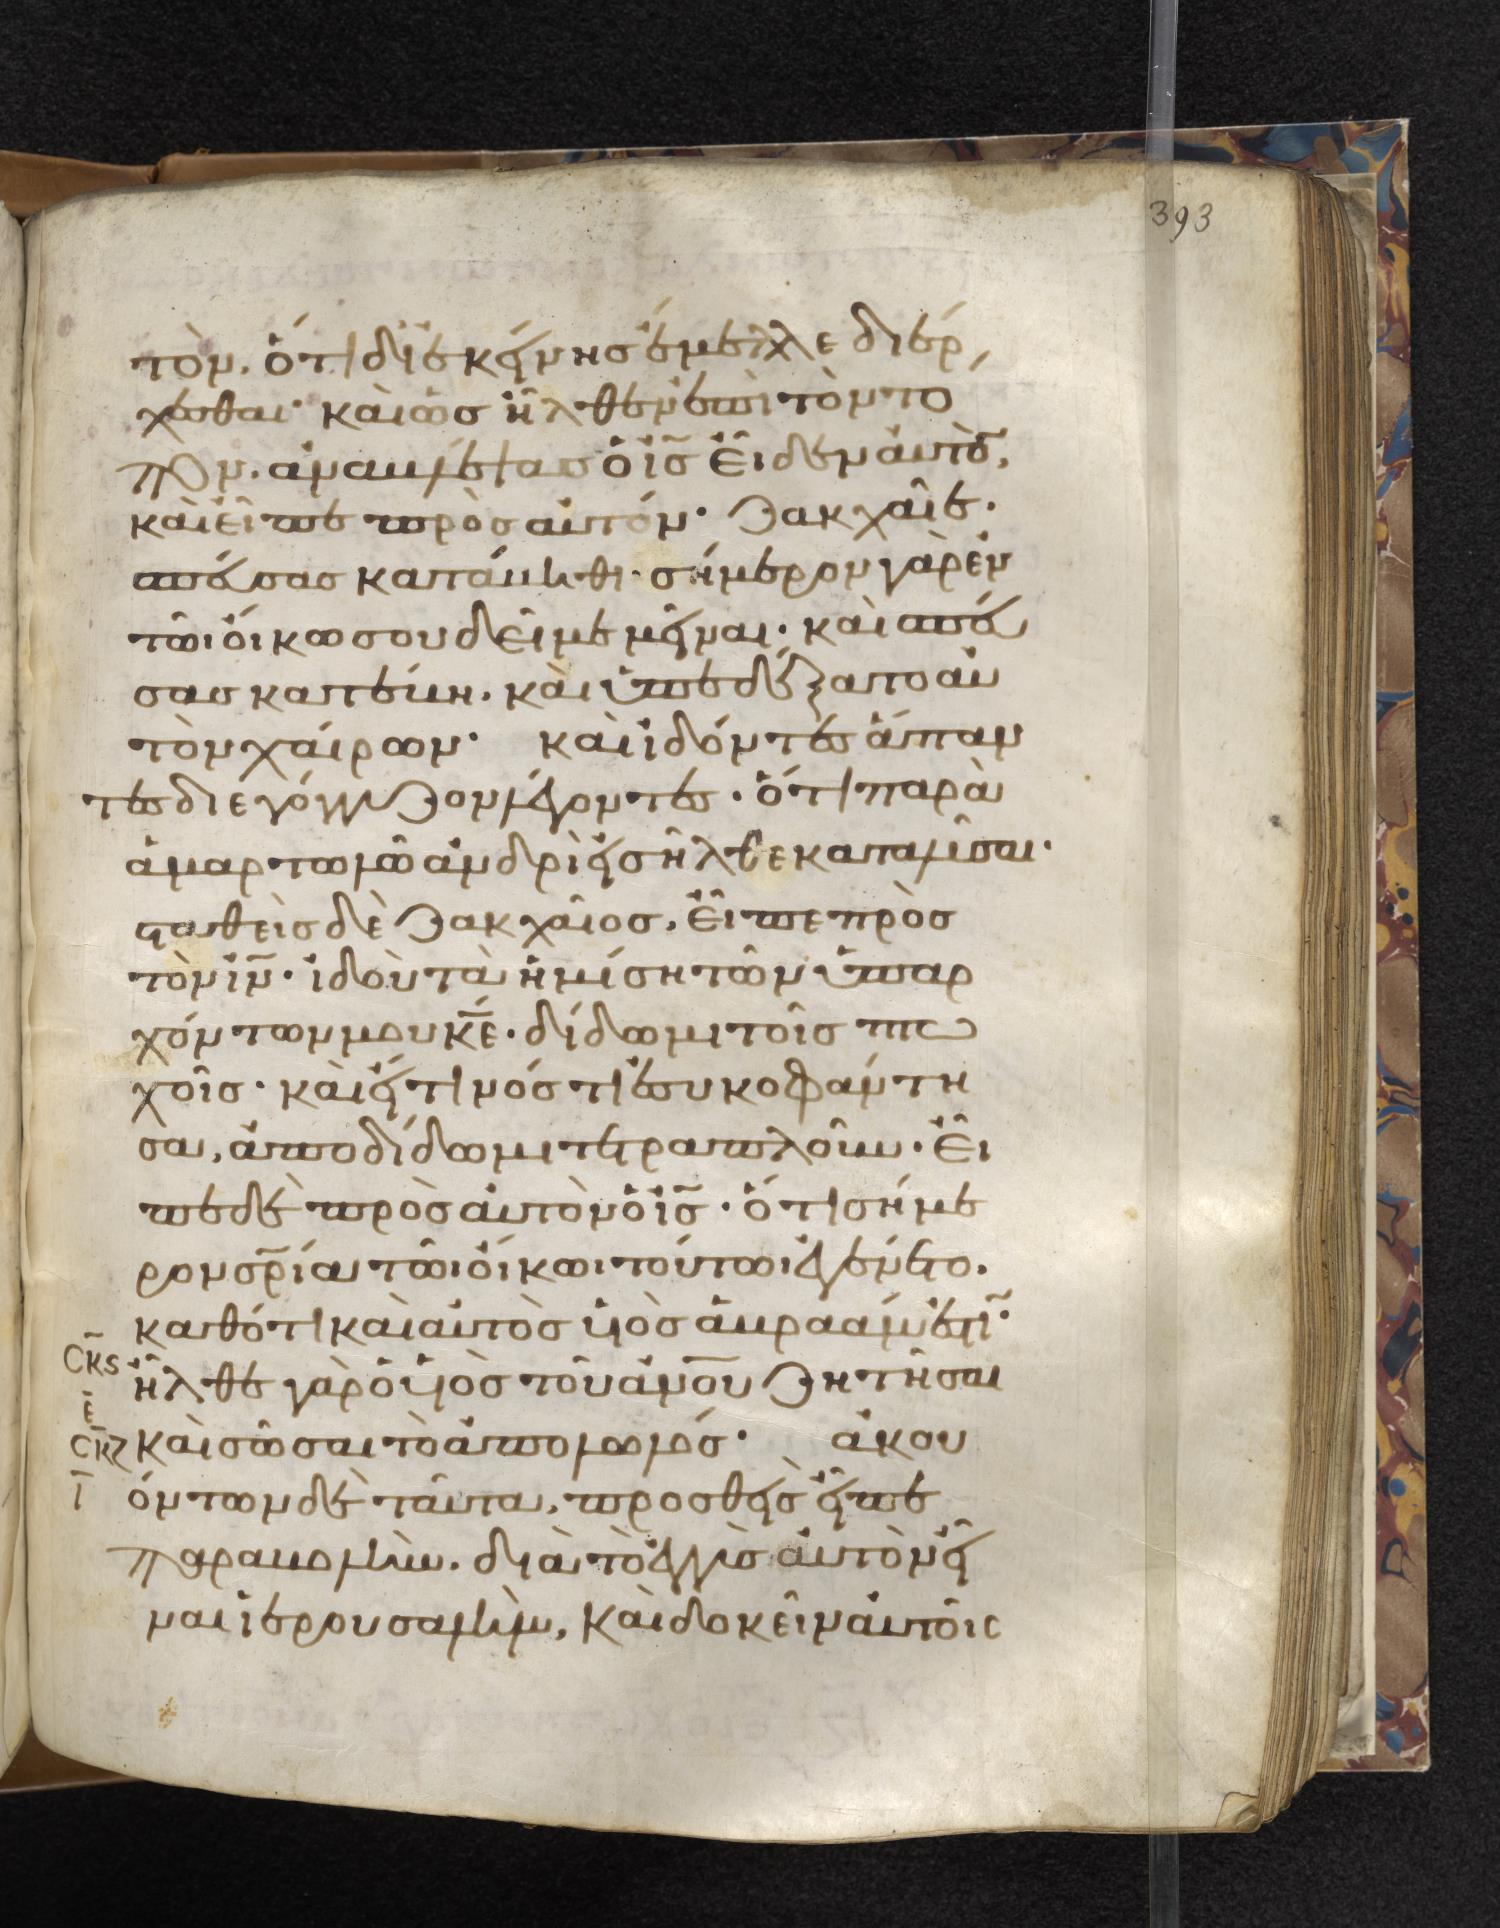 393
τὸν. ὅτι δϊ ἐκείνησ ἔμελλε διέρ
χεσθαι· καὶ ὡσ ἦλθεν ἐπὶ τὸν το
πον. ἀναβλέψασ ὁ ἰ̅σ̅ εἶδεν αὐτὸ̅,
καὶ εἶπε πρὸσ αὐτόν· Ζακχαῖε·
σπεύσασ κατάβηθι· σήμερον γὰρ ἐν
τῶι οἴκω σου δεῖ με μεῖναι· καὶ σπεύ
σασ κατέβη. καὶ ὑπεδέξατο αὐ
τὸν χαίρων· καὶ ἰδόντεσ ἅπαν
τεσ διεγόγγυζον λέγοντεσ· ὅτι παρὰ
ἁμαρτωλῶ ἀνδρὶ εἰσῆλθε καταλῦσαι·
σταθεὶσ δὲ Ζακχαῖοσ, εἶπε πρὸσ
τὸν ἰ̅ν̅· ἰδοὺ τὰ ἡμίση τῶν ὑπαρ
χόντων μου κ̅ε̅· δίδωμι τοῖσ πτω
χοῖσ· καὶ εἴ τινόσ τι ἐσυκοφάντη
σα, ἀποδίδωμι τετραπλοῦν· εἶ
πε δὲ πρὸσ αὐτὸν ὁ ἰ̅σ̅· ὅτι σήμε
ρον σ̅ρ̅ία τῶι οἴκωι τούτωι ἐγένετο.
καθότι καὶ αὐτὸσ υἱὸσ ἀβραάμ ἐστι̅·
C̅K̅Ϛ ἦλθε γὰρ ὁ υἱὸσ τοῦ ἀν̅ο̅υ ζητῆσαι
Ε̅
C̅K̅Ζ καὶ σῶσαι τὸ ἀπολωλόσ· ἀκου
Ι̅ όντων δὲ ταῦτα, προσθεὶσ εἶπε
παραβολὴν. διὰ τὸ ἐγγὺσ αὐτὸν εἶ
ναι ἱερουσαλὴμ, καὶ δοκεῖν αὐτοῖσ